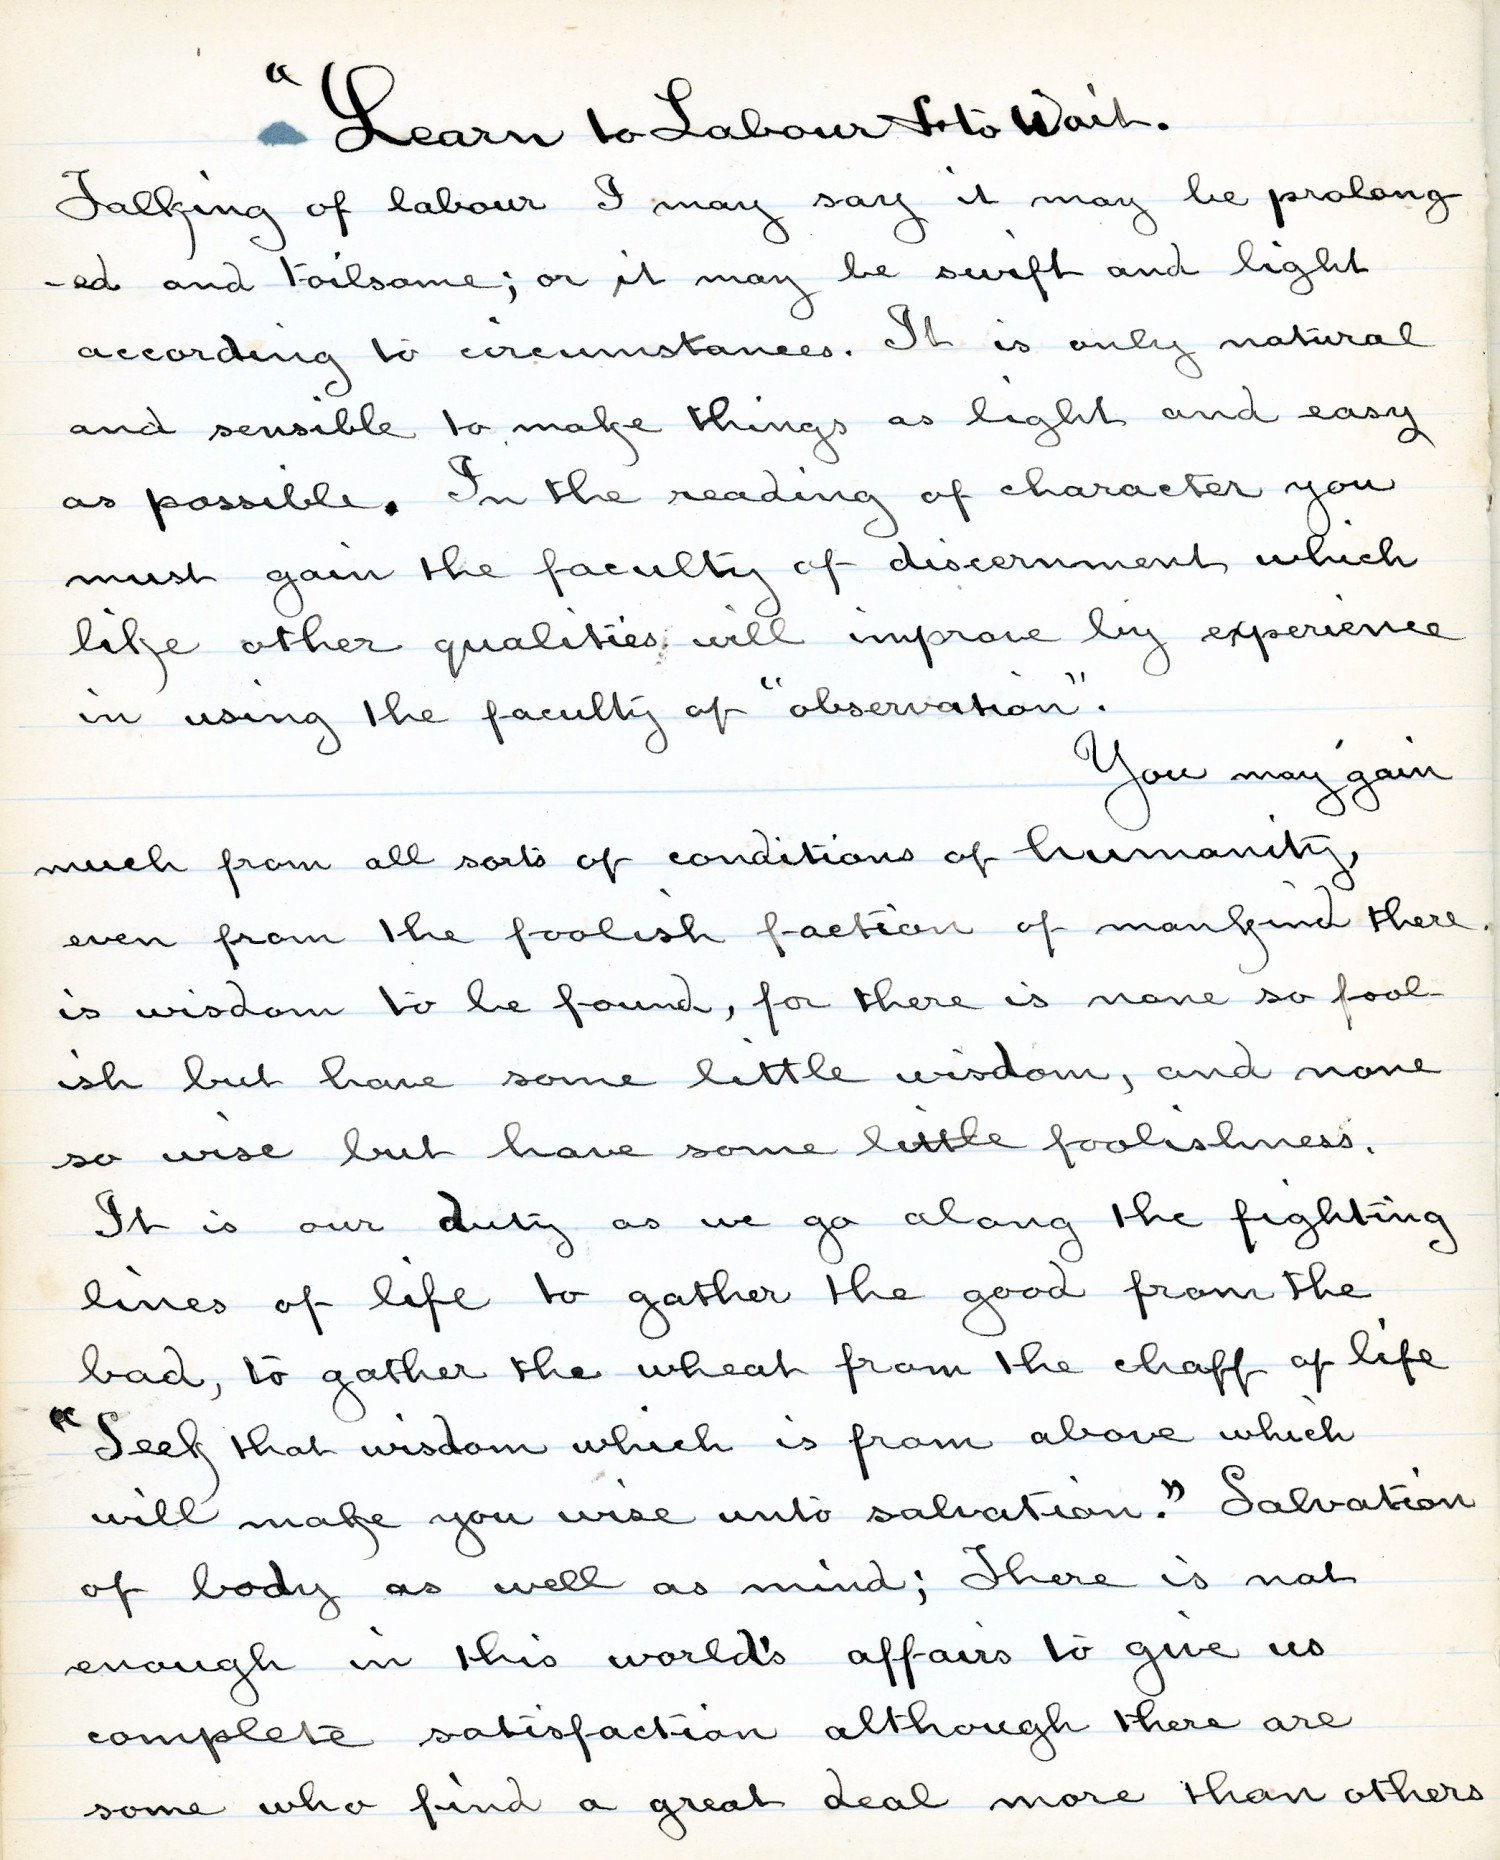 "Learn to Labour & to Wait.
Talking of labour I may say it may be prolong-
-ed and toilsome; or it may be swift and light
according to circumstances. It is only natural
and sensible to make things as light and easy
as possible. In the reading of character you
must gain the faculty of discernment which
like other qualities will improve by experience
in using the faculty of "observation".
You may gain
much from all sorts of conditions of humanity,
even from the foolish faction of mankind there
is wisdom to be found, for there is none so fool-
ish but have some little wisdom, and none
so wise but have some little foolishness.
It is our duty as we go along the fighting
lines of life to gather the good from the
bad, to gather the wheat from the chaff of life
"Seek that wisdom which is from above which
will make you wise unto salvation." Salvation
of body as well as mind; There is not
enough in this world's affairs to give us
complete satisfaction although there are
some who find a great deal more than others